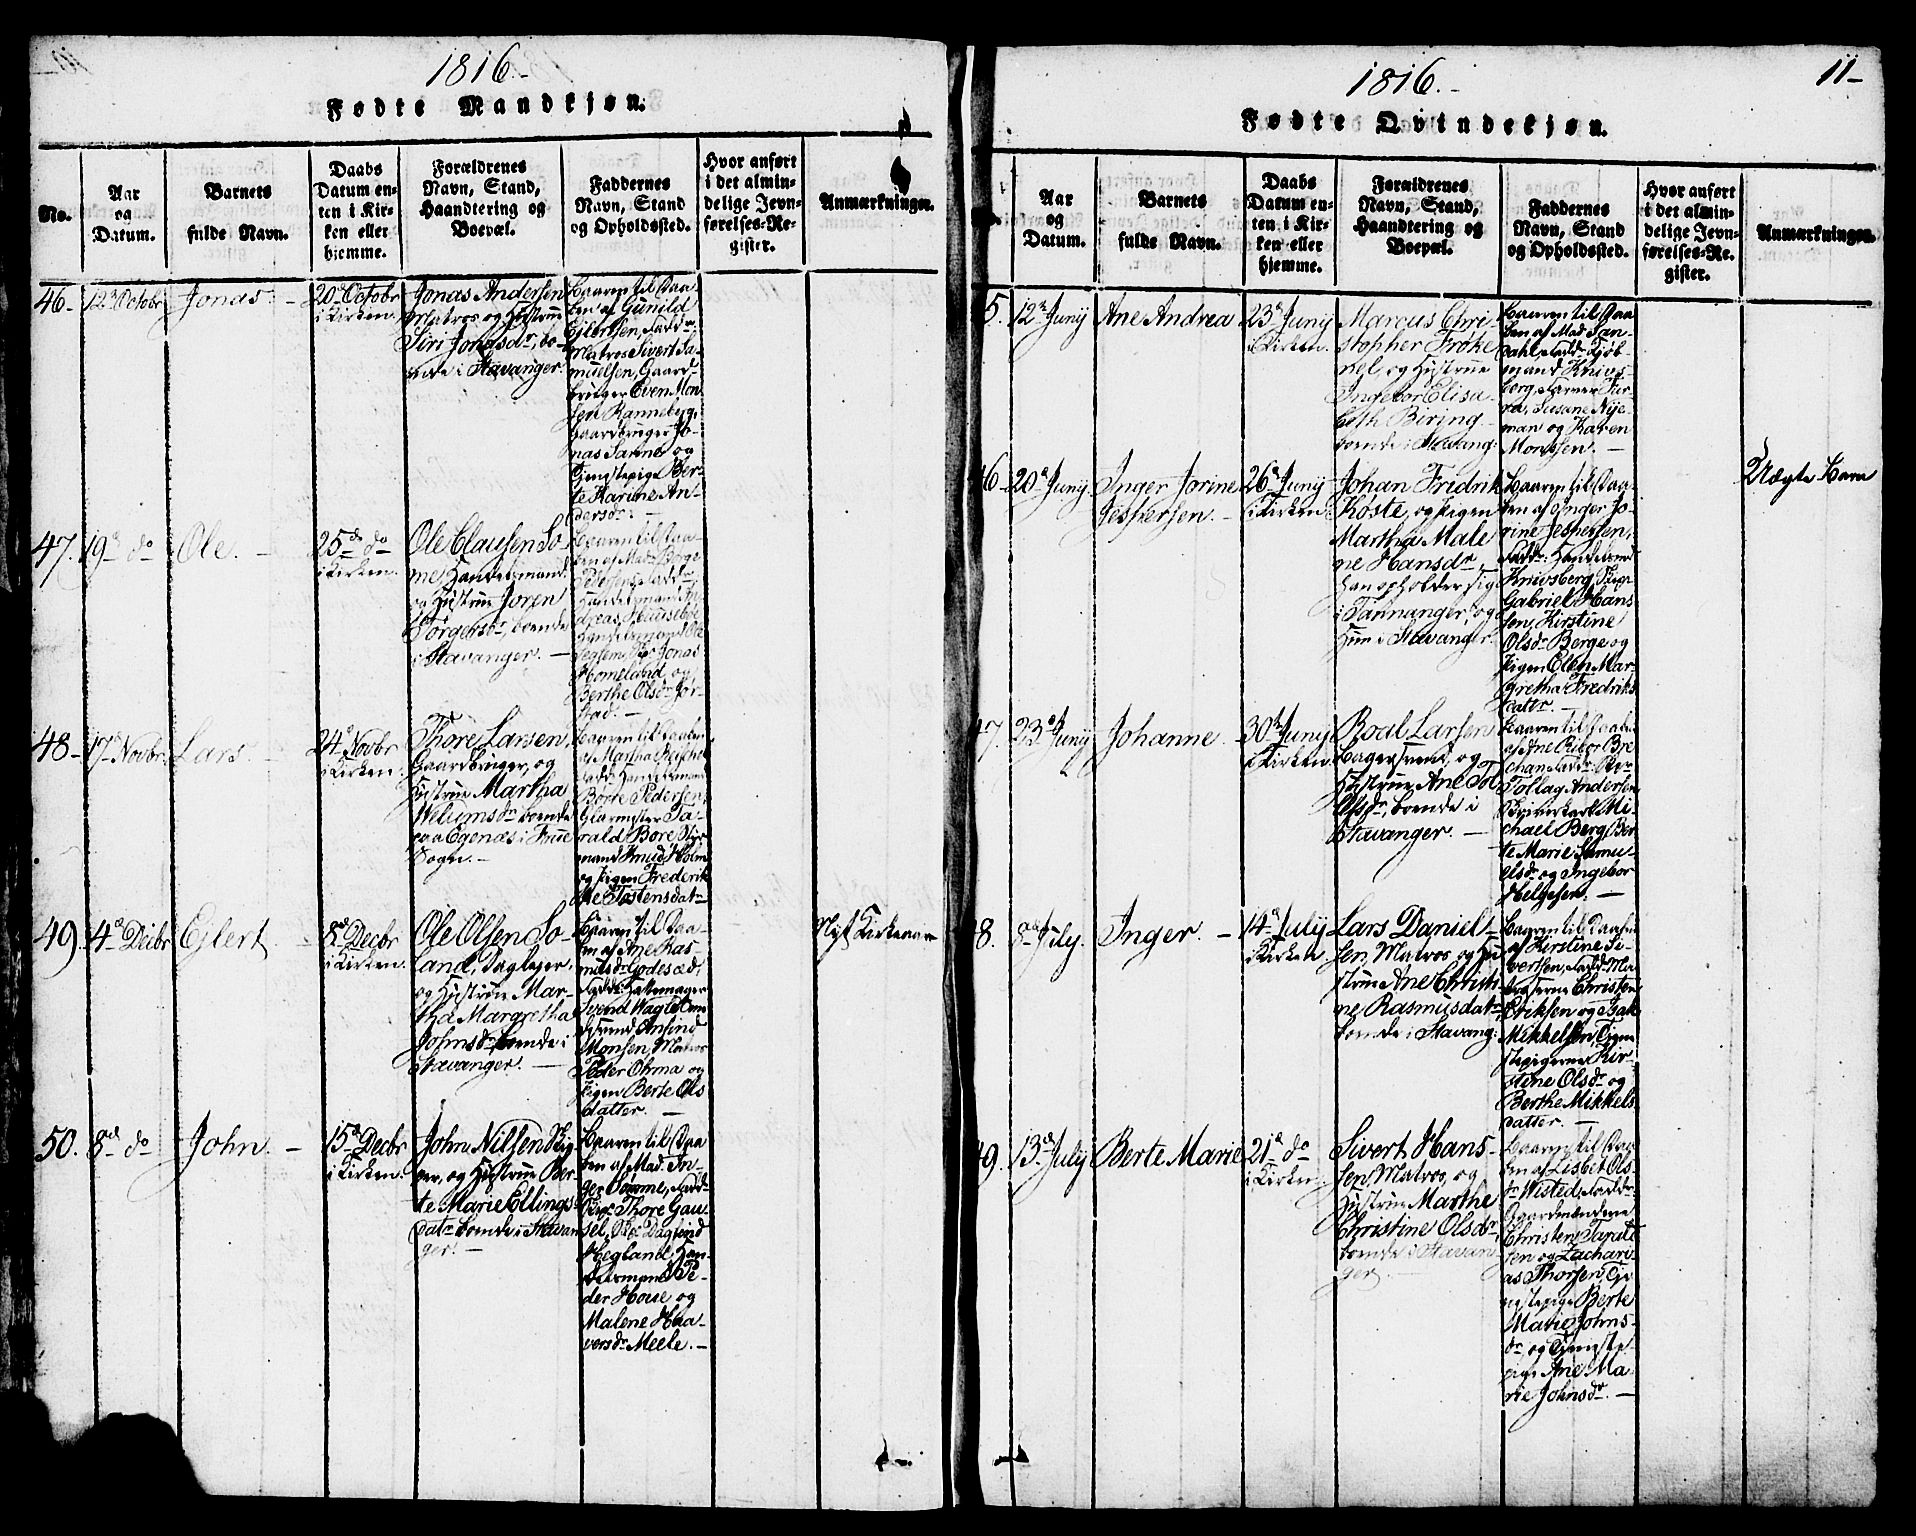 1816.-
Fødte Mandkjøn.
No.
Aar
og
Datum.
Barnets
fulde Navn.
Daabs
Datum en-
ten i Kir-
ken eller
hjemme.
Forældrenes
Navn, Stand,
Haandtering og
Boepæl.
Faddernes
Navn, Stand
og Opholdssted.
Hvor anført
i det almin-
delige Jevn-
førelses-Re-
gister.
Anmærkninger.
46-
12te Octobr
Jonas. -
20de Octobr
i Kirken.
Jonas Andersen
Matros og Hustrue
Siri Jonasdr, bo-
ende i Stavanger.
Baaren til Daa-
ben af Gunild
Ejlertsen, Faddr
Matros Sivert Sa-
muelsen, Gaard-
bruger Even Mon-
sen Ranneberg,
Gaardbruger Jo-
nas Sørine og
Tjenstepige Ber-
te Karine An-
dersdr. -
47.
19de do
Ole. -
25de do
i Kirken.
Ole Clausen So-
me Handelsmand
og Hustrue Joren
Børgersdr, boende
i Stavanger. -
Baaren til Daa-
ben af Mad. Børge
Pedersen, Faddr,
Handelsmand An-
dreas
Handelsmand Ole
Jonas
Homeland og
Berthe Olsdr Jør-
stad. -
48-
17de Novbr.
Lars. -
24de Novbr
i Kirken.
Thore Larsen,
Gaardbruger, og
Hustrue Martha
Wilumsdr, boende
paa Egenæs i Frue
Sogn. -
Baaren til Daaben
af Martha
Faddr Handelsmand
Børre Pedersen,
Glarmester Ja-
rald Bore, Styr-
mand Knud Holm
og Pigen Frederik-
ke Tostensdatr
49.
4de Decbr
Ejlert. -
8de Decbr
i Kirken.
Ole Olsen So-
land, Daglejer,
og Hustrue Mar-
tha Margretha
Johnsdr, boende i
Stavanger. -
Baaren til Daa-
ben af Ane Ras-
musdr Godesæd,
Faddr Hattemager
Svend Wagle
svend Ansind
Monsen, Matros
Peder Ohma og
Pigen Berte Ols-
datter. -
Nyt Kirkeaar
50.
8de do
John. -
15de Decbr
i Kirken.
John Nilsen
og Hustrue Ber-
te Marie Ellings-
datr boende i Stavan-
ger. -
Baaren til Daa-
ben af Mad. In-
ger Somme, Fadd-
Thore Gau-
sel, Dagfind
Hegland, Han-
delsmand Pe-
der Houe og
Malene Haa-
versdr Meele. -
1816.-
11-
Fødte Qvindekjøn.
Aar
og
Datum.
Barnets
fulde Navn.
Daabs
Datum en-
ten i Kir-
ken eller
hjemme.
Forældrenes
Navn, Stand,
Haandtering og
Boepæl.
Faddernes
Navn, Stand
og Opholdssted.
Hvor anført
i det almin-
delige Jevn-
førelses-Re-
gister.
Anmærkninger.
5.
12te Junij
Ane Andrea
23de Junij
i Kirken.
Marcus Chri-
stopher Frøke
og Hustrue
Ingebor Elisa-
beth Biering
boende i Stavang:
Baaren til Daa-
ben af Mad. San-
dahl, Faddr Kjøb-
mand Knivs-
berg,
Susane Nye-
man og Karen
Montsen. -
46-
20de Junij
Inger Jorine
Jespersen. -
26de Junij
i Kirken.
Johan Fredrik
Koste, og Pigen
Martha Male-
ne Hansdr,
han opholder sig
i Tannanger, og
hun i Stavanger.
Baaren til Daa-
ben af Inger Jo-
rine Jespersen,
Faddr. Handelsmd
Knivsberg,
Gabriel Hans-
sen, Kirstine
Olsdr Berge og
Pigen Elen Mar-
gretha Fredriks-
datr. -
Uægte Barn
47.
23de Junij
Johanne. -
30te Junij
i Kirken.
Roal Larsen
Bagersvend, og
Hustrue Ane
Olsdr, boende i
Stavanger. -
Baaren til Daaben
af Ane
Faddr
Tollag Andersen
Mi-
chael Berg, Ber-
te Marie Samu-
elsdr og Ingebor
Helgesen. -
48.
8de July.
Inger. -
14de July
i Kirken
Lars Daniel-
sen, Matros og Hu-
strue Ane Christi-
ne Rasmusdatr,
boende i Stavang:
Baaren til Daaben
af Kirstine Si-
vertsen, Faddr Ma-
troserne Christen
Eriksen og Isak
Mikkelsen, Tjen-
stepigerne Kir-
stine Olsdr og
Berthe Mikkels-
datter. -
49.
13de July
Berte Marie
21de do
i Kirken.
Sivert Hans-
sen, Matros, og
Hustrue Marthe
Christine Olsdr,
boende i Stavan-
ger. -
Baaren til Daa-
ben af Lisbet Ols-
dr Wisted, Faddr
Gaardmændene
Christen
sen og Zachari-
as Thorsen, Tje-
nstepige Berte
Marie Johns-
dr, og Tjenste-
pige Ane Ma-
rie Johnsdr. -